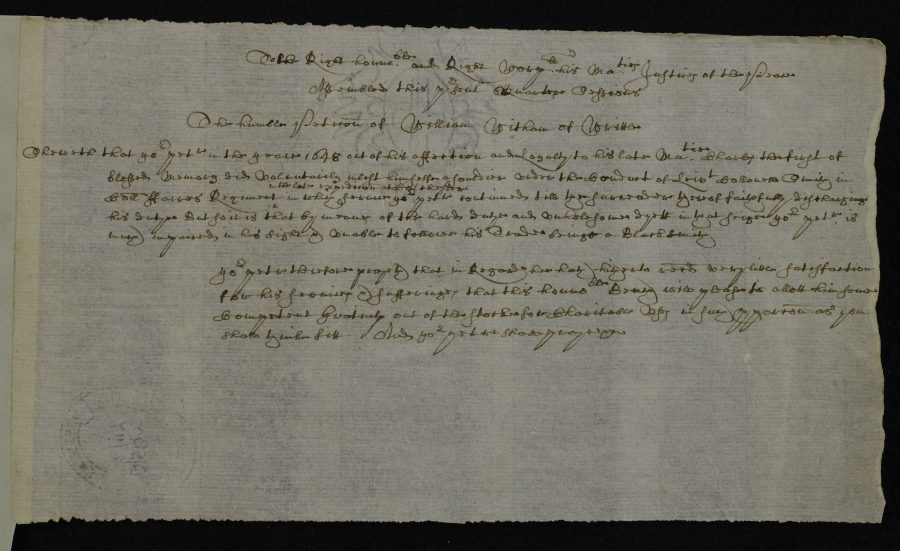 To the Right hono:ble and Right Worp:ll his Ma:ties Justices of the Peace
Assembled this p:rsent Quarter Sessions
The humble Peticon of William Witham of Writtle
Sheweth that yo:r pet:r in the yeare 1648 out of his affection and Loyalty to his late Ma:ties Charles the first of
blessed memory did Voluntarily inlist himselfe a Souldier under the Conduct of Leiv:t
Coll Farres Regiment in the late expedition att Colchester in which service yo:r pet:r continued till the surrender thereof faithfully dischargeing
his dutye But soe it is that by meanes of the hard dutye and unwholsome dyett in that seige yo:r pet:r is
much impaired in his sight & unable to follow his Trade being a Blacksmith
Yo:r pet:r therefore prayeth that in Regard hee hath hitherto reced very litle satisfaction
for his service & sufferings that this hono:ble Bench will please to allott him some
Competent gratuity out of the stocke for Charitable Uses in such p:porcon as you
shall thinke fitt And yo:r pet:r shall pray &c